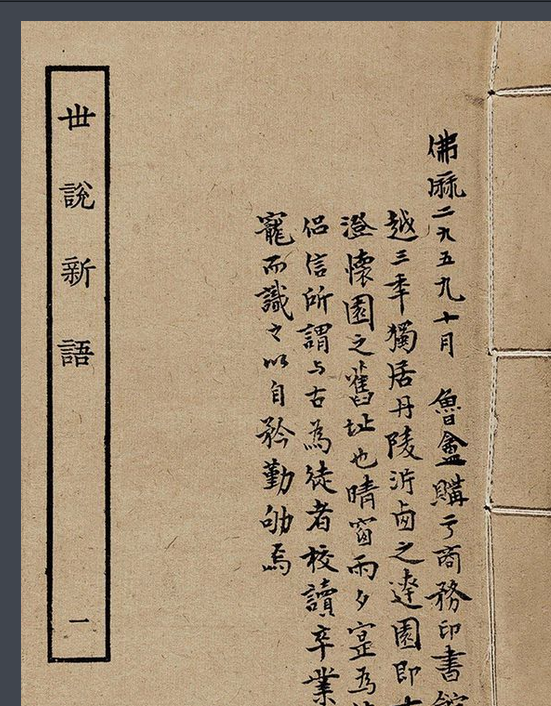 佛厤二九五九十月　魯盦購亏商務印書館
越三秊獨居丹陵沜卥之達園即
澄懷園之舊址也晴窗雨夕寔為
侣信所謂与古為徒者校讀卒業
寵而識之以自矜勤劬焉
世說新語　一